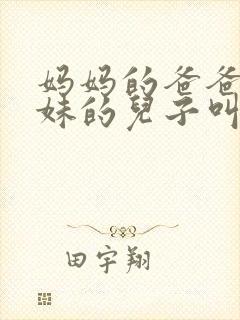 妈妈的爸爸
妹的兒子叫
田宇翔